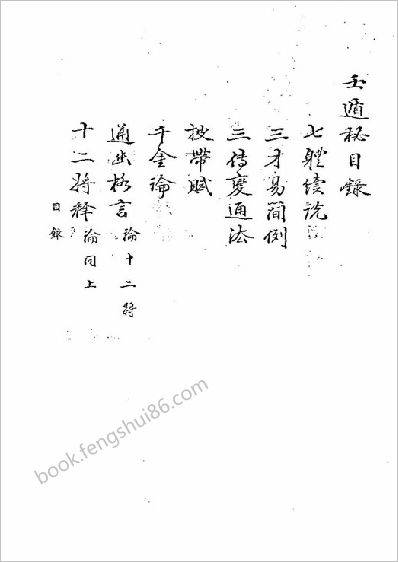 壬遁秘目錄
七體續說
三才易簡例
三傳變通法
帶賦
千金論
通幽格言 論十二將
十二將釋 論同上
目錄
book.fengshui86.com